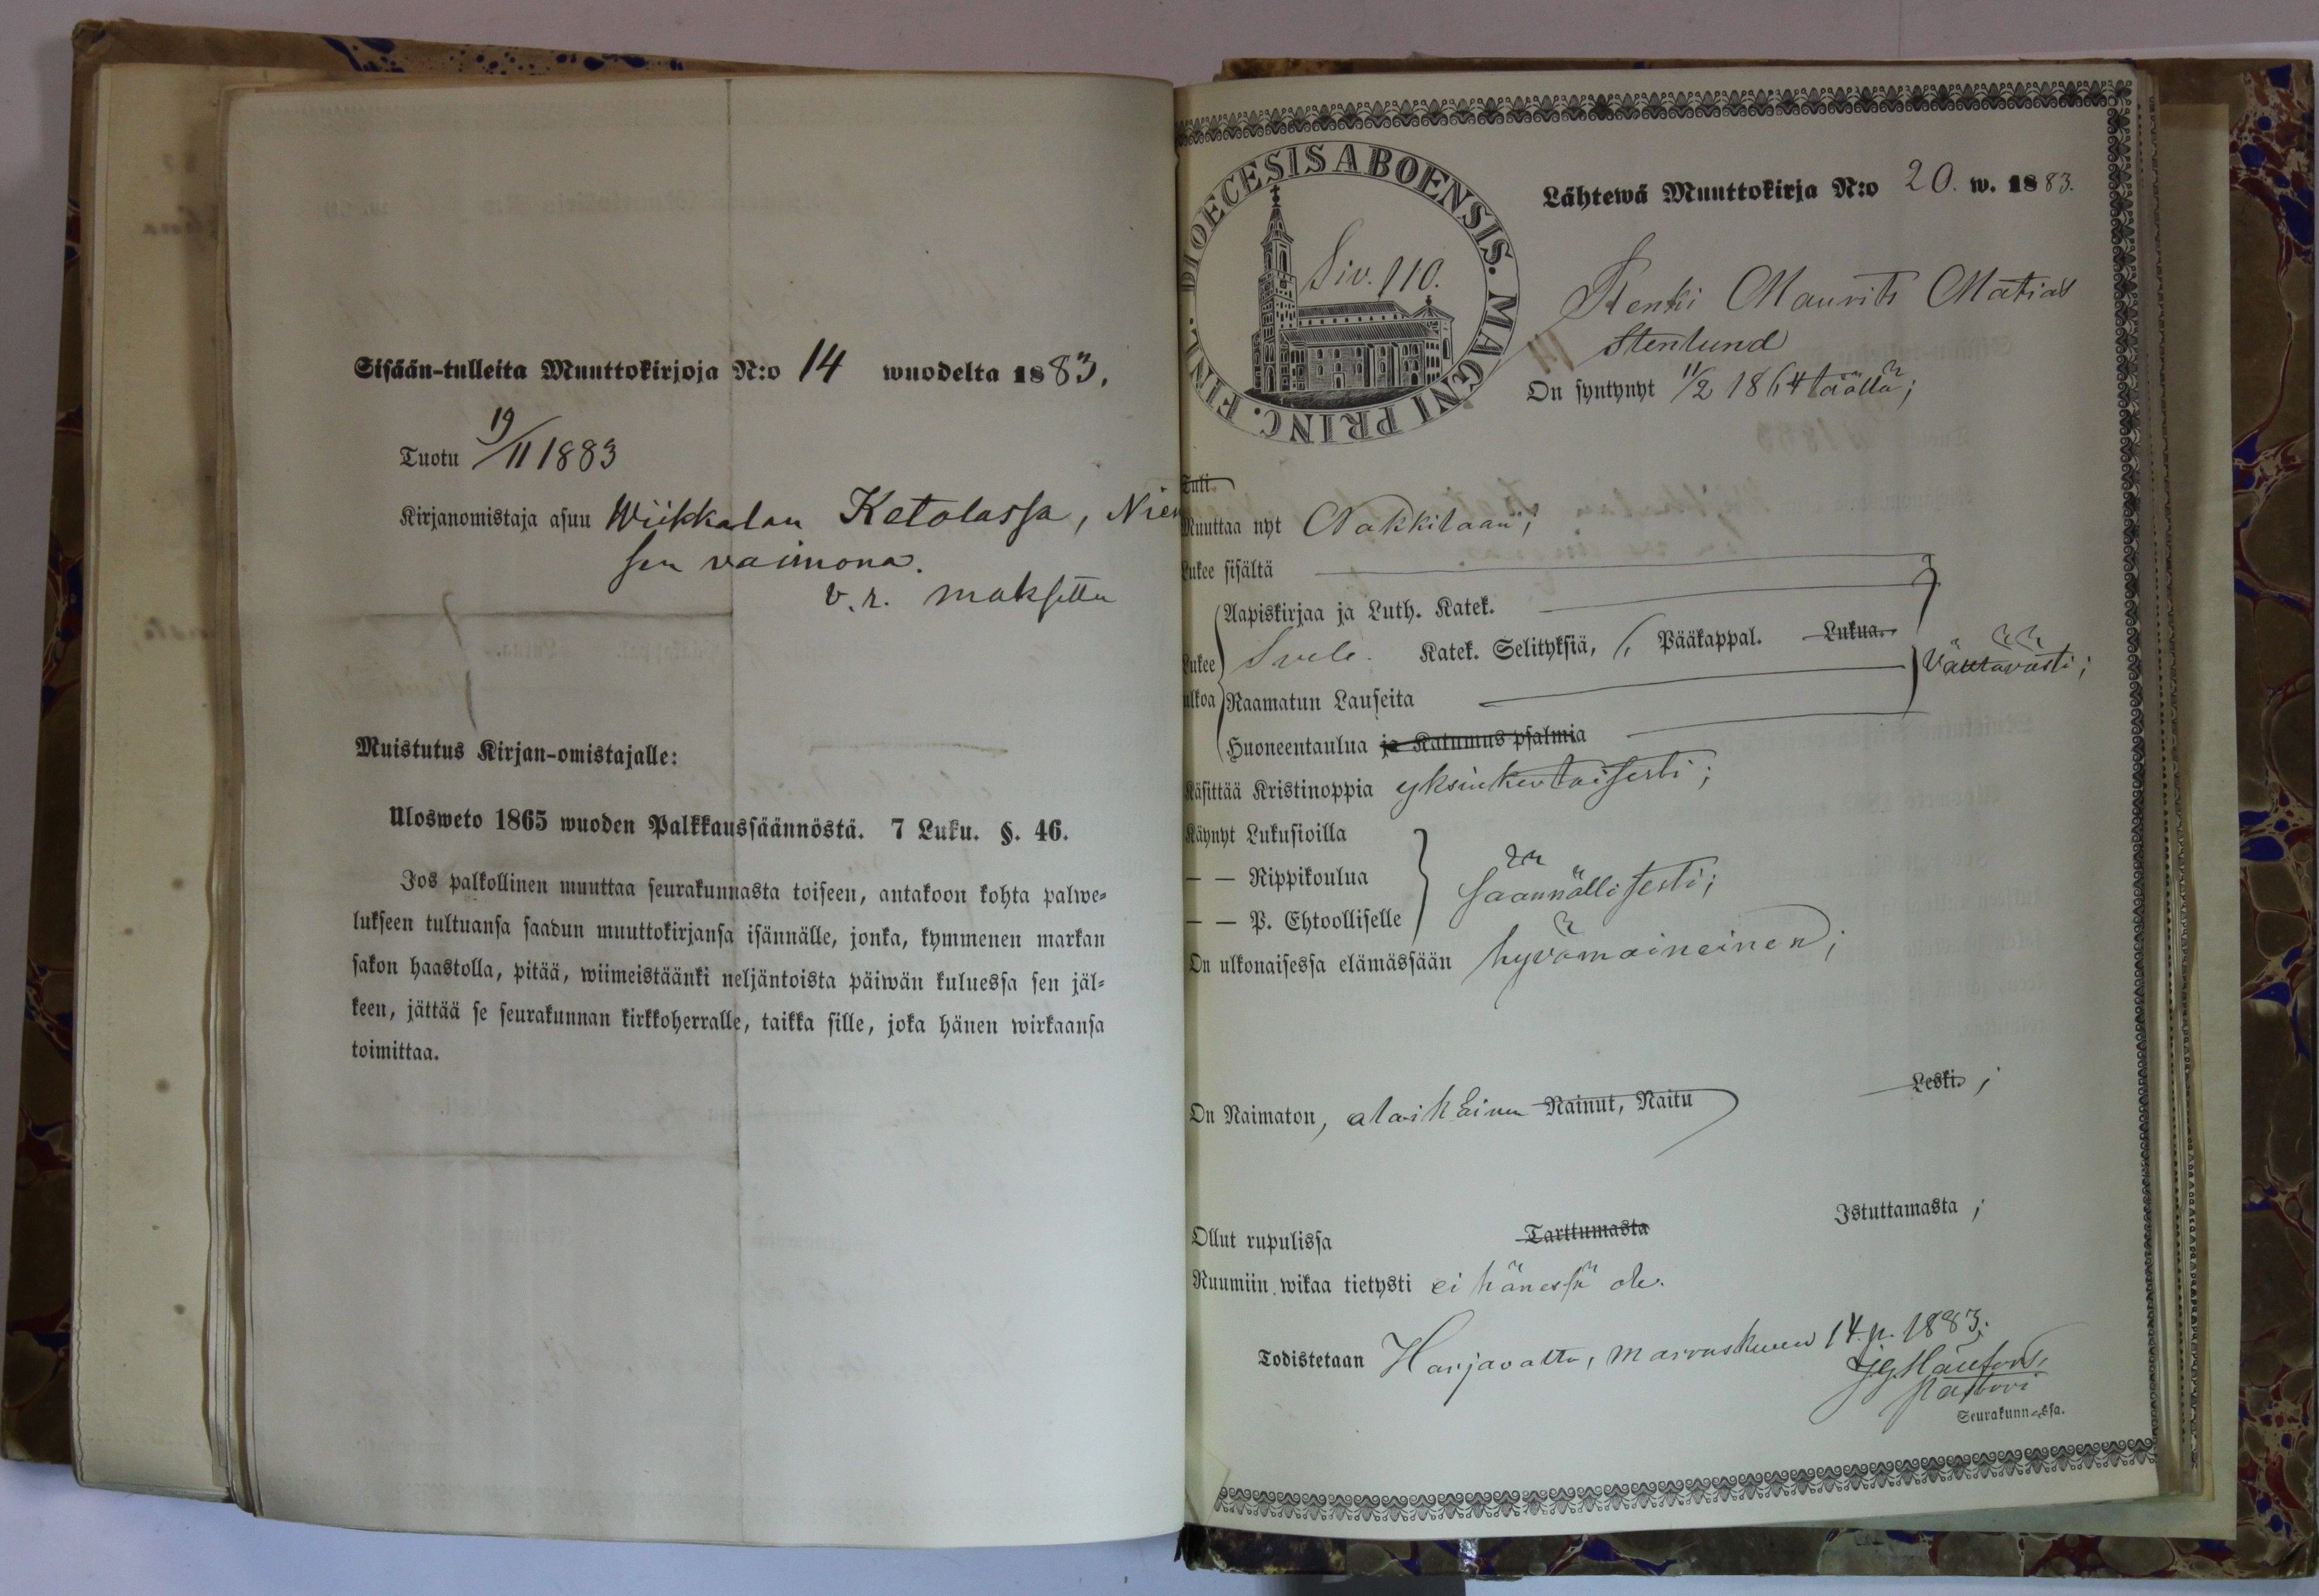 Sisään-tulleita Muuttokirjoja N:o 14 wuodelta 1883.
Tuotu 19/11 1883
Kirjanomistaja asuu Wiikkalan Ketolassa, Nie
sen vaimona.
v. r. maksettu
Muistutus Kirjan-omistajalle:
Ulosweto 1865 wuoden Palkkaussäännöstä. 7 Luku. §. 46.
Jos palkollinen muuttaa seurakunnasta toiseen, antakoon kohta palwe-
lukseen tultuansa saadun muuttokirjansa isännälle, jonka, kymmenen markan
sakon haastolla, pitää, wiimeistäänki neljäntoista päiwän kuluessa sen jäl-
keen, jättää se seurakunnan kirkkoherralle, taikka sille, joka hänen wirkaansa
toimittaa.
DIOECESIS ABOENSIS. MAGNI PRINC. FINL.
Siv. 110.
Lähtewä Muuttokirja N:o 20. w. 1883.
Renki Maurits Matias
Stenlund
On syntynyt 11/2 1864 täällä;
Tuli
Muuttaa nyt Nakkilaan;
Lukee sisältä
Aapiskirjaa ja Luth. Katek.
Lukee ulkoa Svele. Katek. Selityksiä, Pääkappal. Lukua. Välttävästi;
Raamatun Lauseita
Huoneentaulua ja Katumus psalmia
Käsittää Kristinoppia yksinkertaisesti;
Käynyt Lukusioilla
— — Rippikoulua säännöllisesti;
— — P. Ehtoolliselle
On ulkonaisessa elämässään hyvämaineinen;
On Naimaton, alaikäinen Nainut, Naitu Leski. ;
Ollut rupulissa Tarttumasta Istuttamasta ;
Ruumiin wikaa tietysti ei hänessä ole.
Todistetaan Harjavalta, marraskuun 14. p. 1883.
pastori
Seurakunnassa.